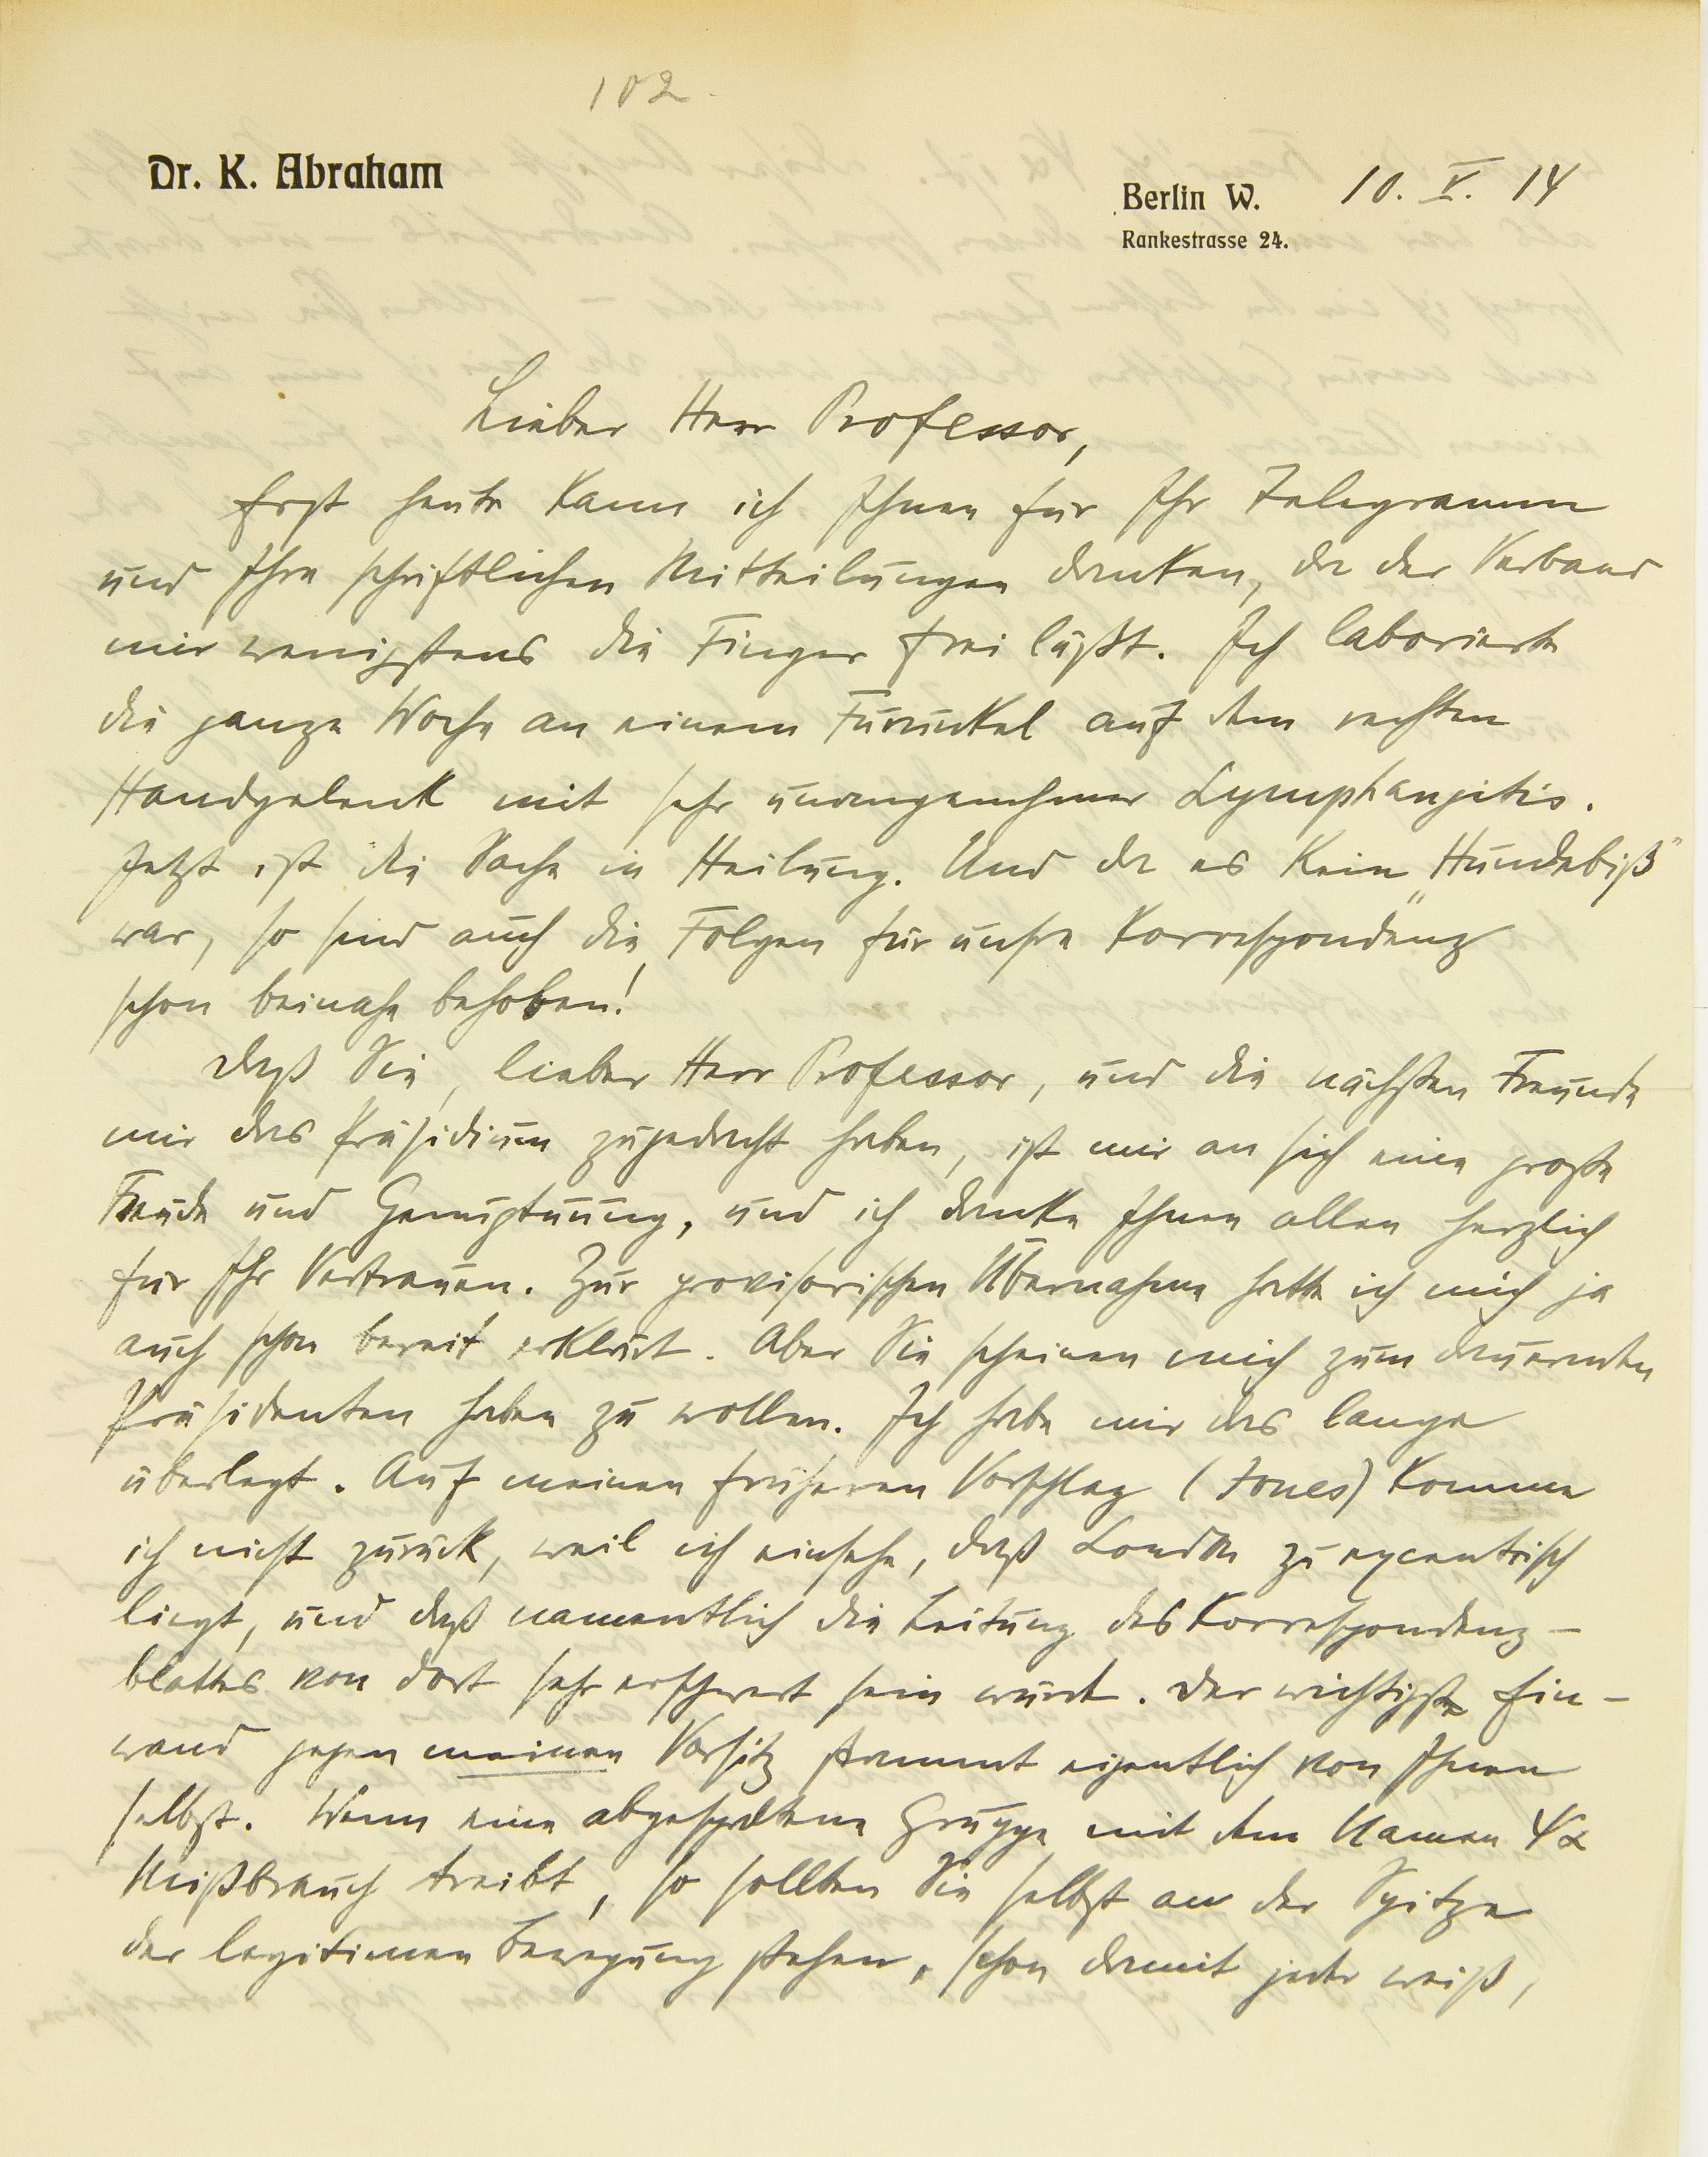 102.
Dr. K. Abraham
Berlin W. 10. V. 14
Rankestrasse 24.
Lieber Herr Professor,
Erst heute kann ich Ihnen für Ihr Telegramm
und Ihre schriftlichen Mitteilungen danken, da der Verband
mir wenigstens die Finger frei läßt. Ich laborierte
die ganze Woche an einem Furunkel auf dem rechten
Handgelenk mit sehr unangenehmer Lymphangitis.
Jetzt ist die Sache in Heilung. Und da es kein „Hundebiß"
war, so sind auch die Folgen für unsre Korrespondenz
schon beinahe behoben!
Daß Sie, lieber Herr Professor, und die nächsten Freunde
mir das Präsidium zugedacht haben, ist mir an sich eine große
Freude und Genugtuung, und ich danke Ihnen allen herzlich
für Ihr Vertrauen. Zur provisorischen Übernahme hatte ich mich ja
auch schon bereit erklärt. Aber Sie scheinen mich zum dauernden
Präsidenten haben zu wollen. Ich habe mir das lange
überlegt. Auf meinen früheren Vorschlag (Jones) komme
ich nicht zurück, weil ich einsehe, daß London zu excentrisch
liegt, und daß namentlich die Leitung des Korrespondenz-
blattes von dort sehr erschwert sein würde. Der wichtigste Ein-
wand gegen meinen Vorsitz stammt eigentlich von Ihnen
selbst. Wenn eine abgespaltene Gruppe mit dem Namen Ψα
Mißbrauch treibt, so sollten Sie selbst an der Spitze
der legitimen Bewegung stehen, schon damit jeder weiß,